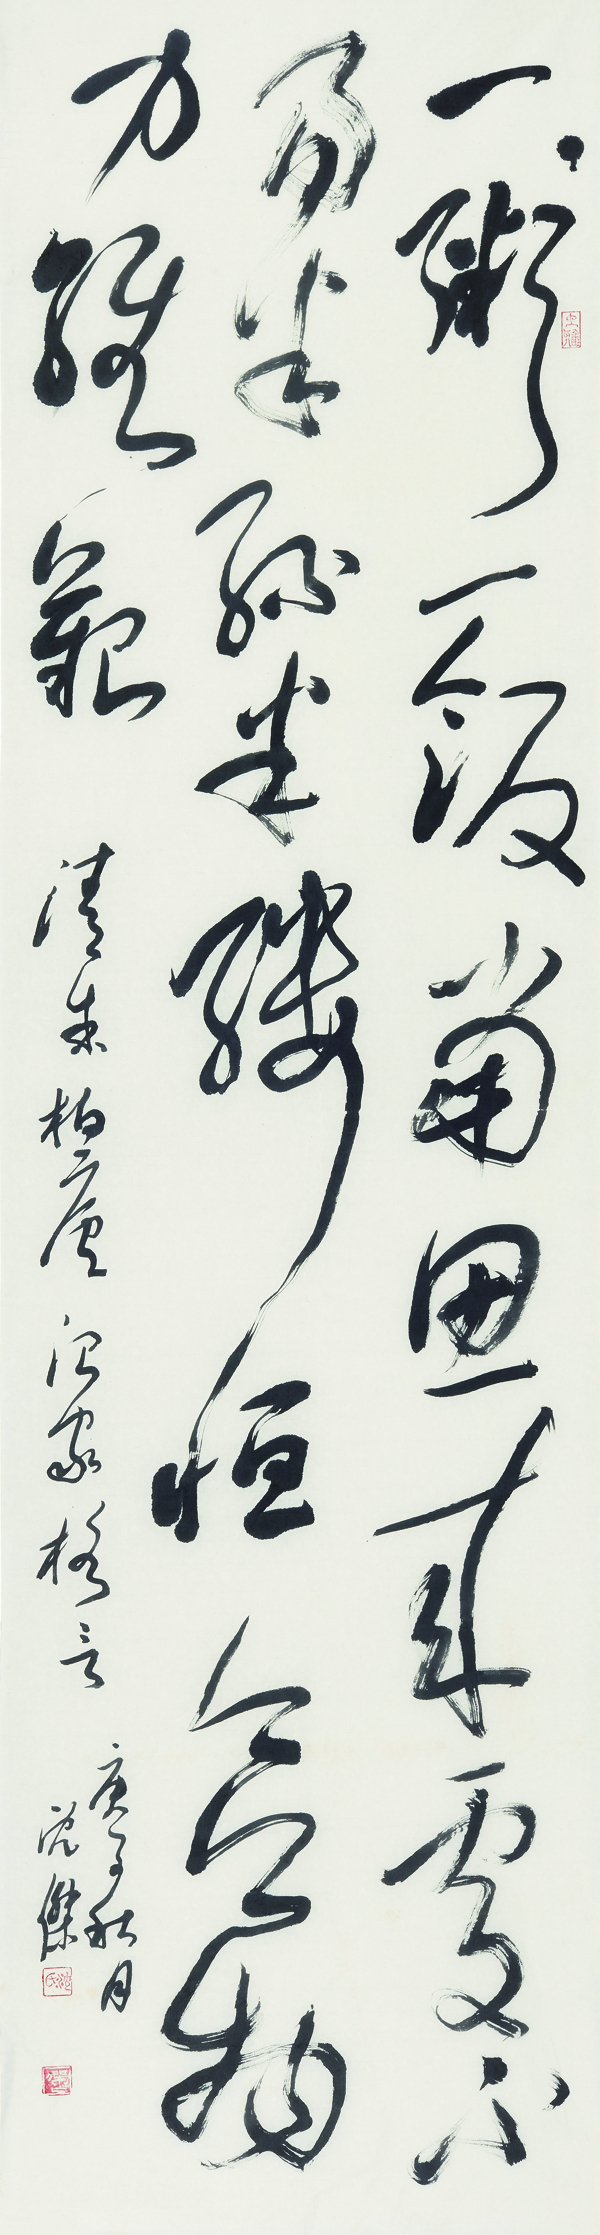 一粥一飯當思來處不
易半絲半縷恒念物
力維艱
清朱柏廬治家格言
庚子秋月
沈傑